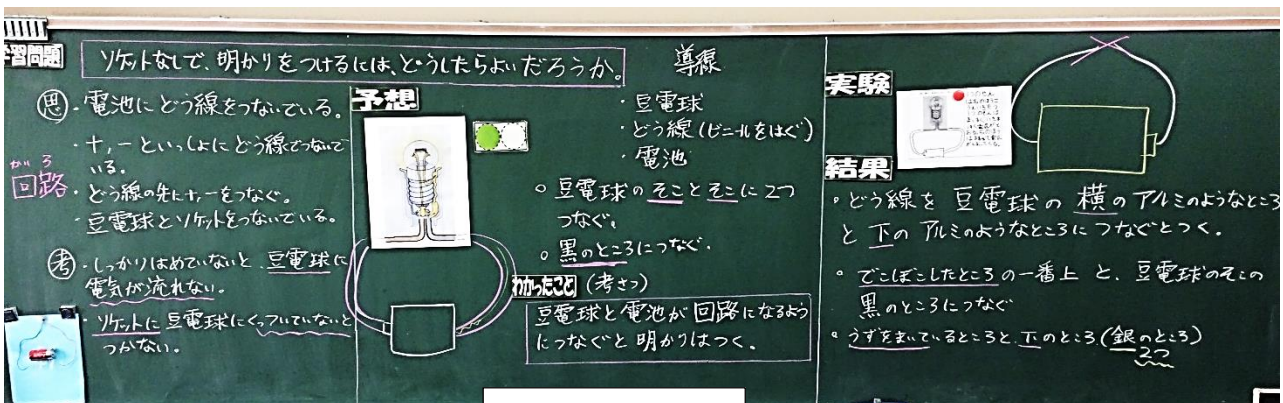 学習問題
ソケットなしで、明かりをつけるには、どうしたらよいだろうか。
思
・電池にどう線をつないでいる。
・+,−といっしょにどう線でつないで
いる。
かいろ
回路
・どう線の先に+,−をつなぐ。
・豆電球とソケットをつないでいる。
考
・しっかりはめていないと、豆電球に
電気が流れない。
・ソケットに豆電球にくっついていないと
つかない。
予想
導線
・豆電球
・どう線(ビニールをはぐ)
・電池
○豆電球のそことそこに2つ
つなぐ。
○黒のところにつなぐ。
わかったこと(考さつ)
豆電球と電池が回路になるよう
につなぐと明かりはつく。
実験
結果
○どう線を豆電球の横のアルミのようなところ
と下のアルミのようなところにつなぐとつく。
○でこぼこしたところの一番上と、豆電球のそこの
黒のところにつなぐ
○うずをまいているところと下のところ(銀のところ)
2つ